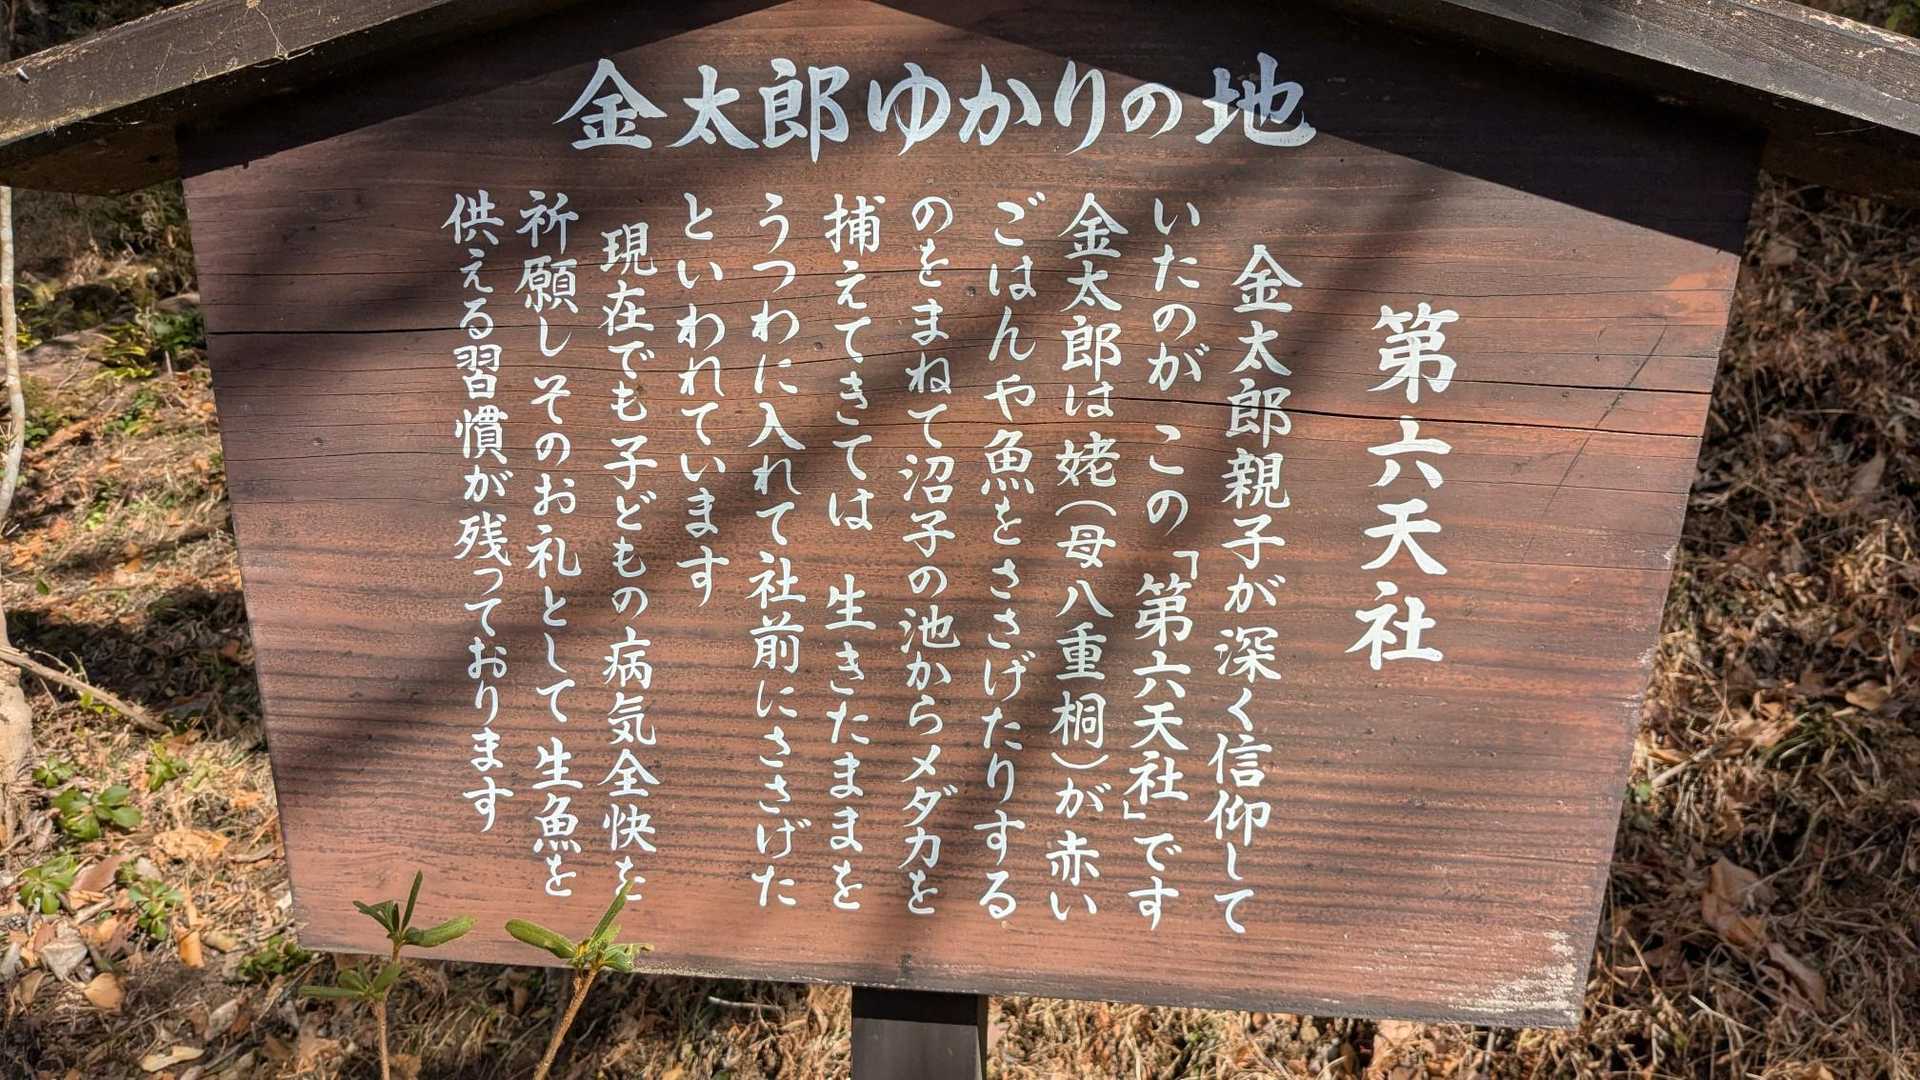 金太郎ゆかりの地
第六天社
金太郎親子が深く信仰して
いたのが この「第六天社」です
金太郎は姥(母八重桐)が赤い
ごはんや魚をささげたりする
のをまねて沼子の池からメダカを
捕えてきては 生きたままを
うつわに入れて社前にささげた
といわれています
現在でも子どもの病気全快を
祈願しそのお礼として生魚を
供える習慣が残っております